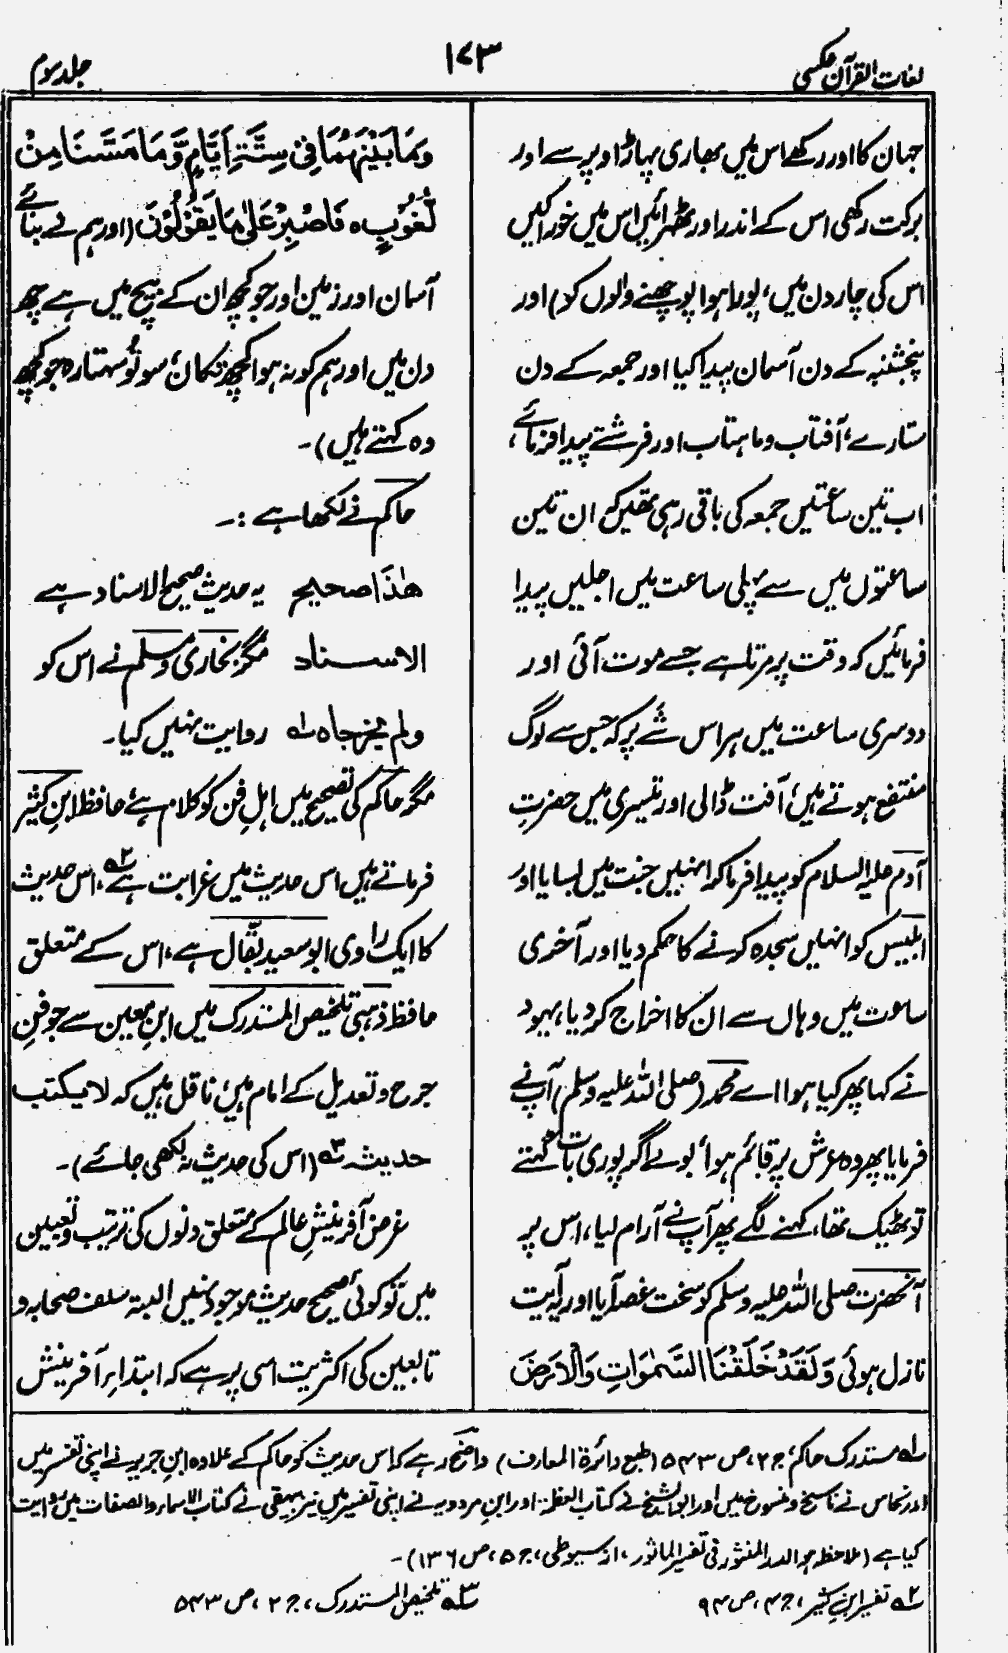 لغات القرآن عکسی
۱۷۳
جلد سوم
جہان کا اور رکھے اس میں بھاری پہاڑ اوپر سے اور
برکت رکھی اس کے اندر اور ٹھرائیں اس میں خوراکیں
اس کی چار دن میں، پورا ہوا پوچھنے والوں کو) اور
پنجشنبہ کے دن آسمان پیدا کیا اور جمعہ کے دن
ستارے، آفتاب و ماہتاب اور فرشتے پیدا فرمائے،
اب تین ساعتیں جمعہ کی باقی رہی تھیں کہ ان تین
ساعتوں میں سے پہلی ساعت میں اجلیں پیدا
فرمائیں کہ وقت پر مرتا ہے جسے موت آئی اور
دوسری ساعت میں ہر اس شے پر کہ جس سے لوگ
منتفع ہوتے ہیں، آفت ڈالی اور تیسری میں حضرت
آدم علیہ السلام کو پیدا فرما کر انہیں جنت میں بسایا اور
ابلیس کو انہیں سجدہ کرنے کا حکم دیا اور آخری
ساعت میں وہاں سے ان کا اخراج کر دیا، یہود
نے کہا پھر کیا ہوا اے محمد (صلی اللہ علیہ وسلم) آپ نے
فرمایا پھر وہ عرش پر قائم ہوا، بولے اگر پوری بات کہتے
تو ٹھیک تھا، کہنے لگے پھر آپ نے آرام لیا، اس پر
آنحضرت صلی اللہ علیہ وسلم کو سخت غصہ آیا اور یہ آیت
نازل ہوئی وَلَقَدْ خَلَقْنَا السَّمٰوَاتِ وَالْاَرْضَ
وَمَا بَيْنَهُمَا فِيْ سِتَّةِ اَيَّامٍ وَّمَا مَسَّنَا مِنْ
لُّغُوْبٍ، فَاصْبِرْ عَلٰى مَا يَقُوْلُوْنَ (اور ہم نے بنائے
آسمان اور زمین اور جو کچھ ان کے بیچ میں ہے چھ
دن میں اور ہم کو نہ ہوا کچھ تکان، سو تو سہتا رہ جو کچھ
وہ کہتے ہیں)۔
حاکم نے لکھا ہے :۔
ھٰذا صحیح یہ حدیث صحیح الاسناد ہے
الاسناد مگر بخاری و مسلم نے اس کو
ولم یخرجاہ ۱؎ روایت نہیں کیا۔
مگر حاکم کی تصحیح میں اہلِ فن کو کلام ہے، حافظ ابن کثیر
فرماتے ہیں اس حدیث میں غرابت ہے ۲؎، اس حدیث
کا ایک راوی ابو سعید بقّال ہے، اس کے متعلق
حافظ ذہبی تلخیص المستدرک میں ابن معین سے جو فن
جرح و تعدیل کے امام ہیں، ناقل ہیں کہ لا یکتب
حدیثہ ۳؎ (اس کی حدیث نہ لکھی جائے)۔
غرض آفرینشِ عالم کے متعلق دنوں کی ترتیب و تعیین
میں تو کوئی صحیح حدیث موجود نہیں البتہ سلف صحابہ و
تابعین کی اکثریت اسی پر ہے کہ ابتداء آفرینش
۱؎ مستدرک حاکم، ج ۲، ص ۵۴۳ (طبع دائرۃ المعارف) واضح رہے کہ اس حدیث کو حاکم کے علاوہ ابن جریر نے اپنی تفسیر میں
اور نحاس نے ناسخ و منسوخ میں اور ابو الشیخ نے کتاب العظمۃ اور ابن مردویہ نے اپنی تفسیر میں نیز بیہقی نے کتاب الاسماء والصفات میں روایت
کیا ہے (ملاحظہ ہو الدر المنثور فی تفسیر الماثور، از سیوطی، ج ۵، ص ۱۳۶)۔
۲؎ تفسیر ابن کثیر، ج ۴، ص ۹۴
۳؎ تلخیص المستدرک، ج ۲، ص ۵۴۳